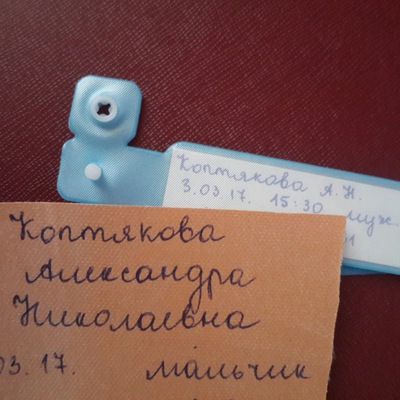 Коптякова А.Н.
3.03.17. 15:30 муж.
Коптякова
Александра
Николаевна
03.17. мальчик